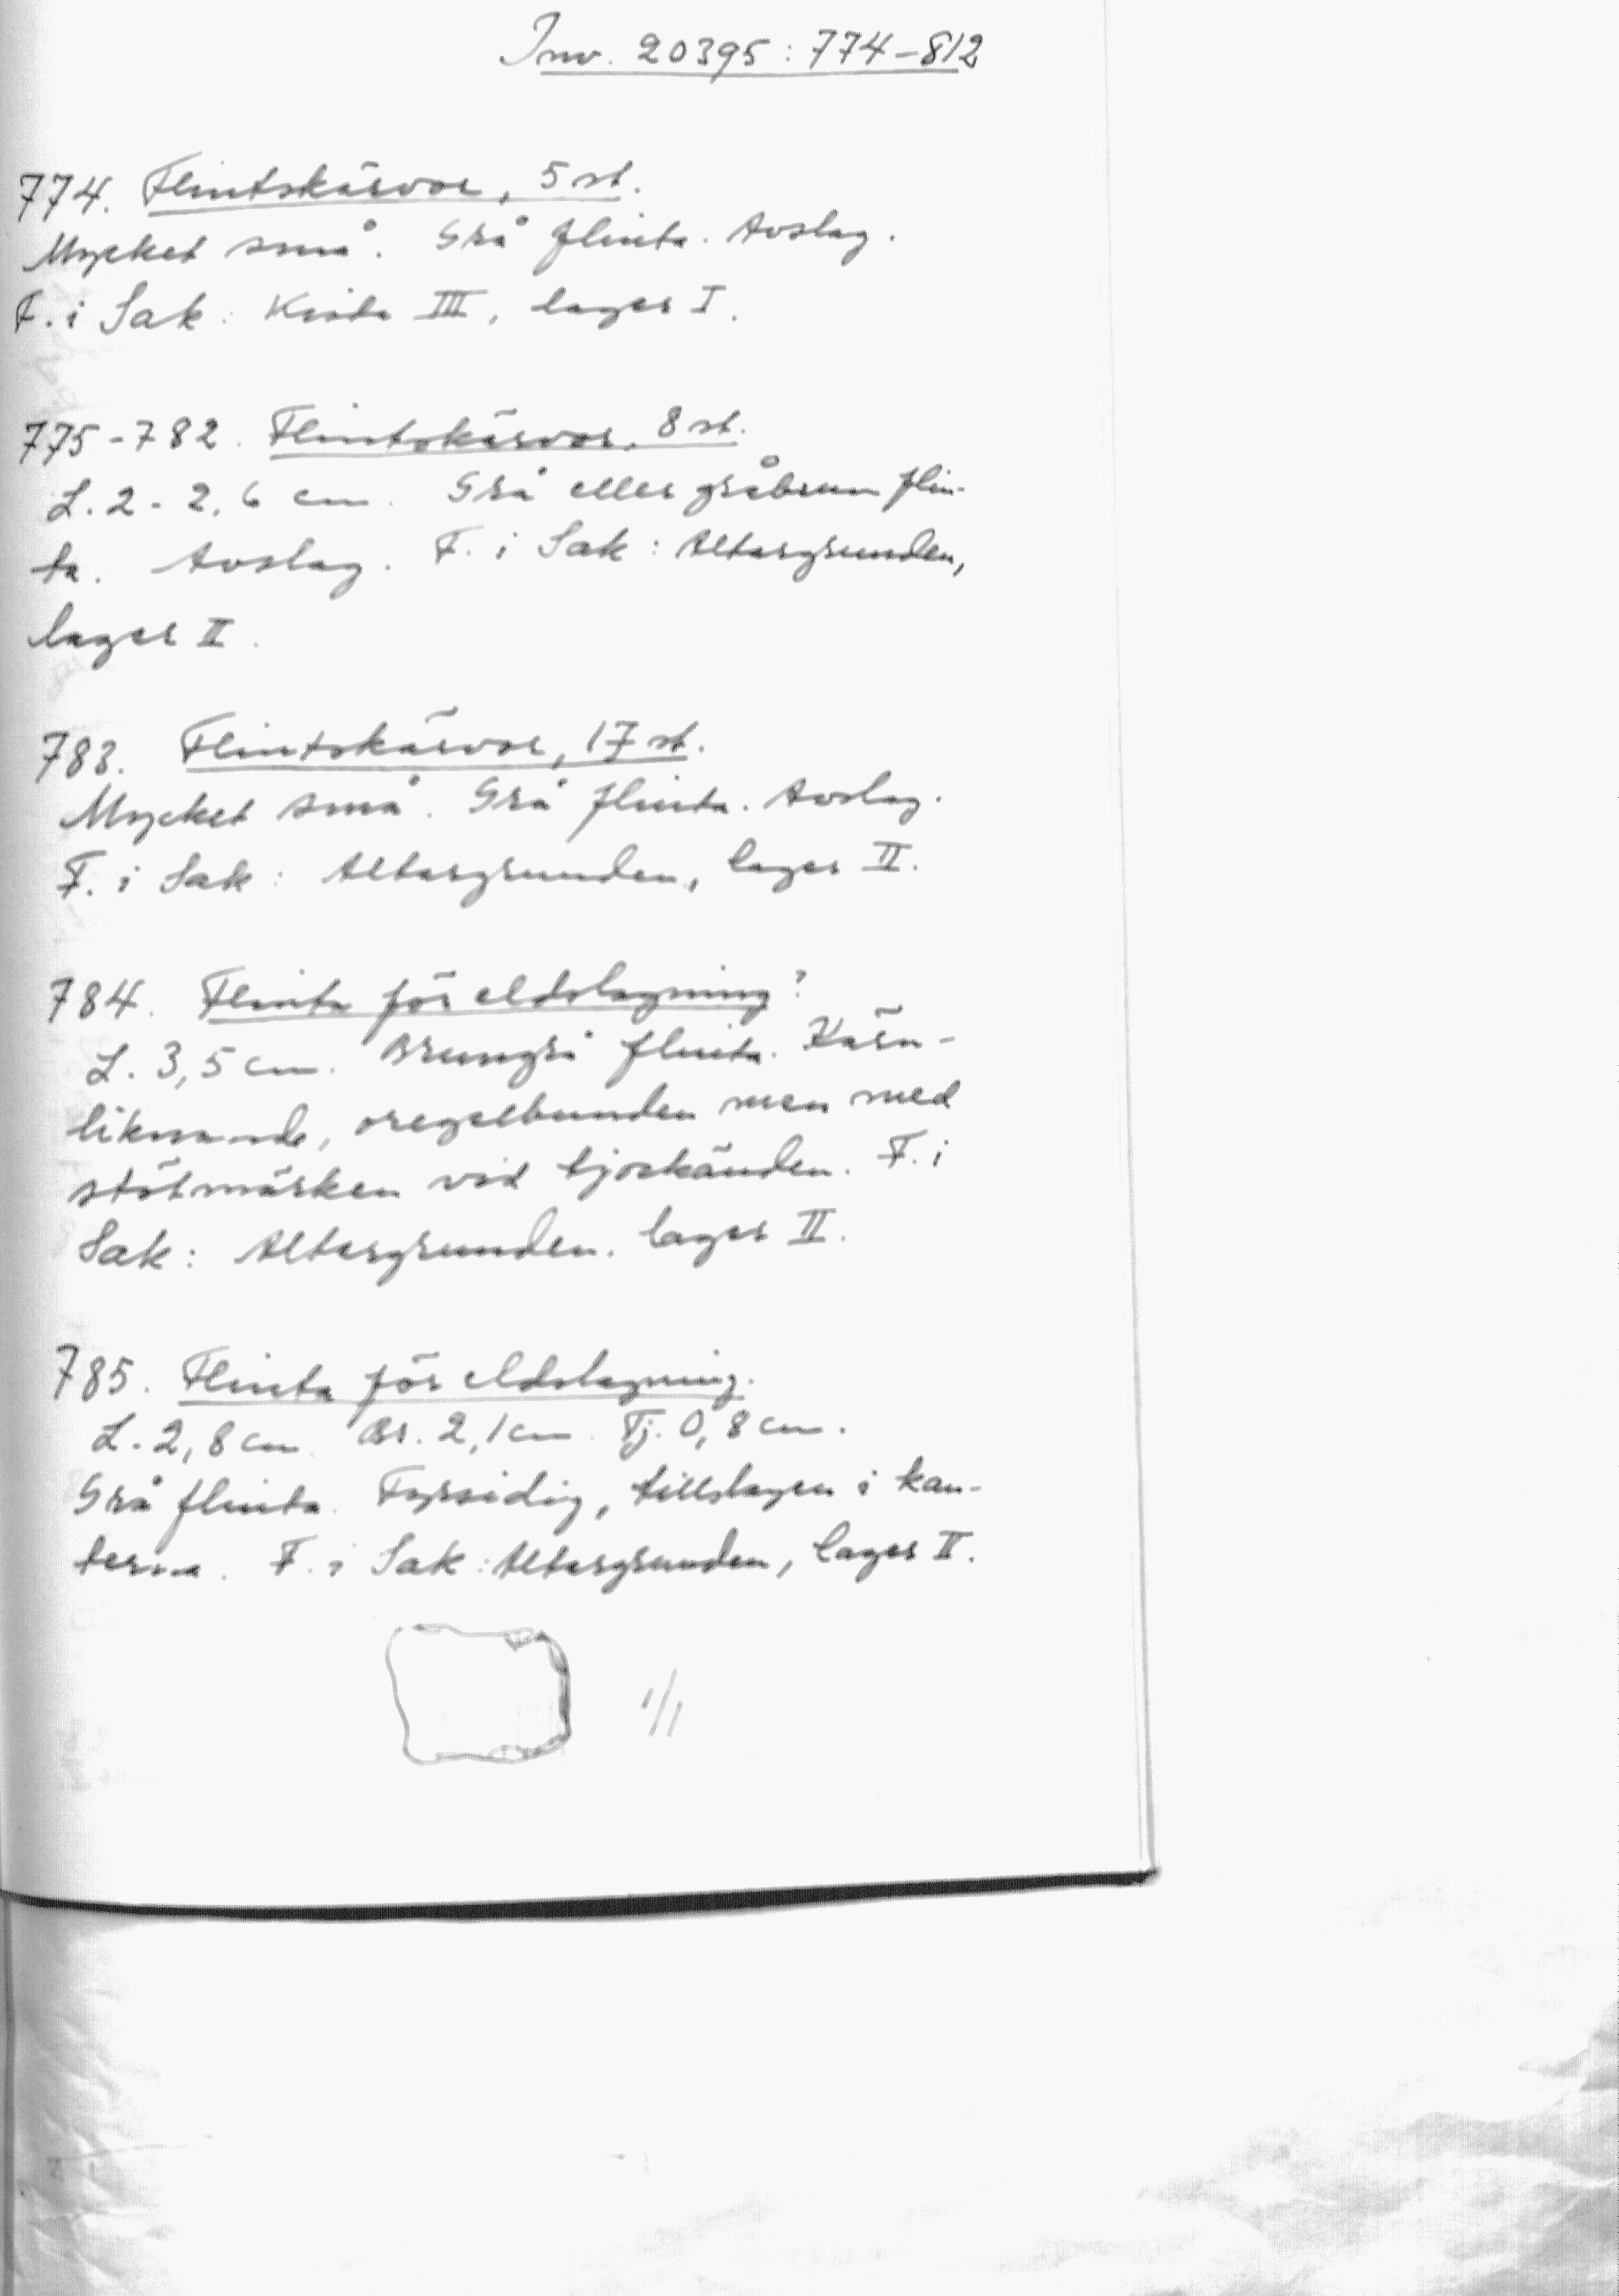 Inv. 20395: 774-812
774. Flintskärvor, 5 st.
Mycket små. Grå flinta. Avslag.
F. i Sak: Kista III, lager I.
775-782. Flintskärvor, 8 st.
L. 2-2,6 cm. Grå eller gråbrun flin-
ta. Avslag. F. i Sak: Altargrunden,
lager II.
783. Flintskärvor, 17 st.
Mycket små. Grå flinta. Avslag.
F. i Sak: Altargrunden, lager II.
784. Flinta för eldslagning?
L. 3,5 cm. Brungrå flinta. Kärn-
liknande, oregelbunden men med
stötmärken vid tjockänden. F. i
Sak: Altargrunden. lager II.
785. Flinta för eldslagning.
L. 2,8 cm. Br. 2,1 cm. Tj. 0,8 cm.
Grå flinta. Fyrsidig, tillslagen i kan-
terna. F. i Sak: Altargrunden, lager II.
1/1